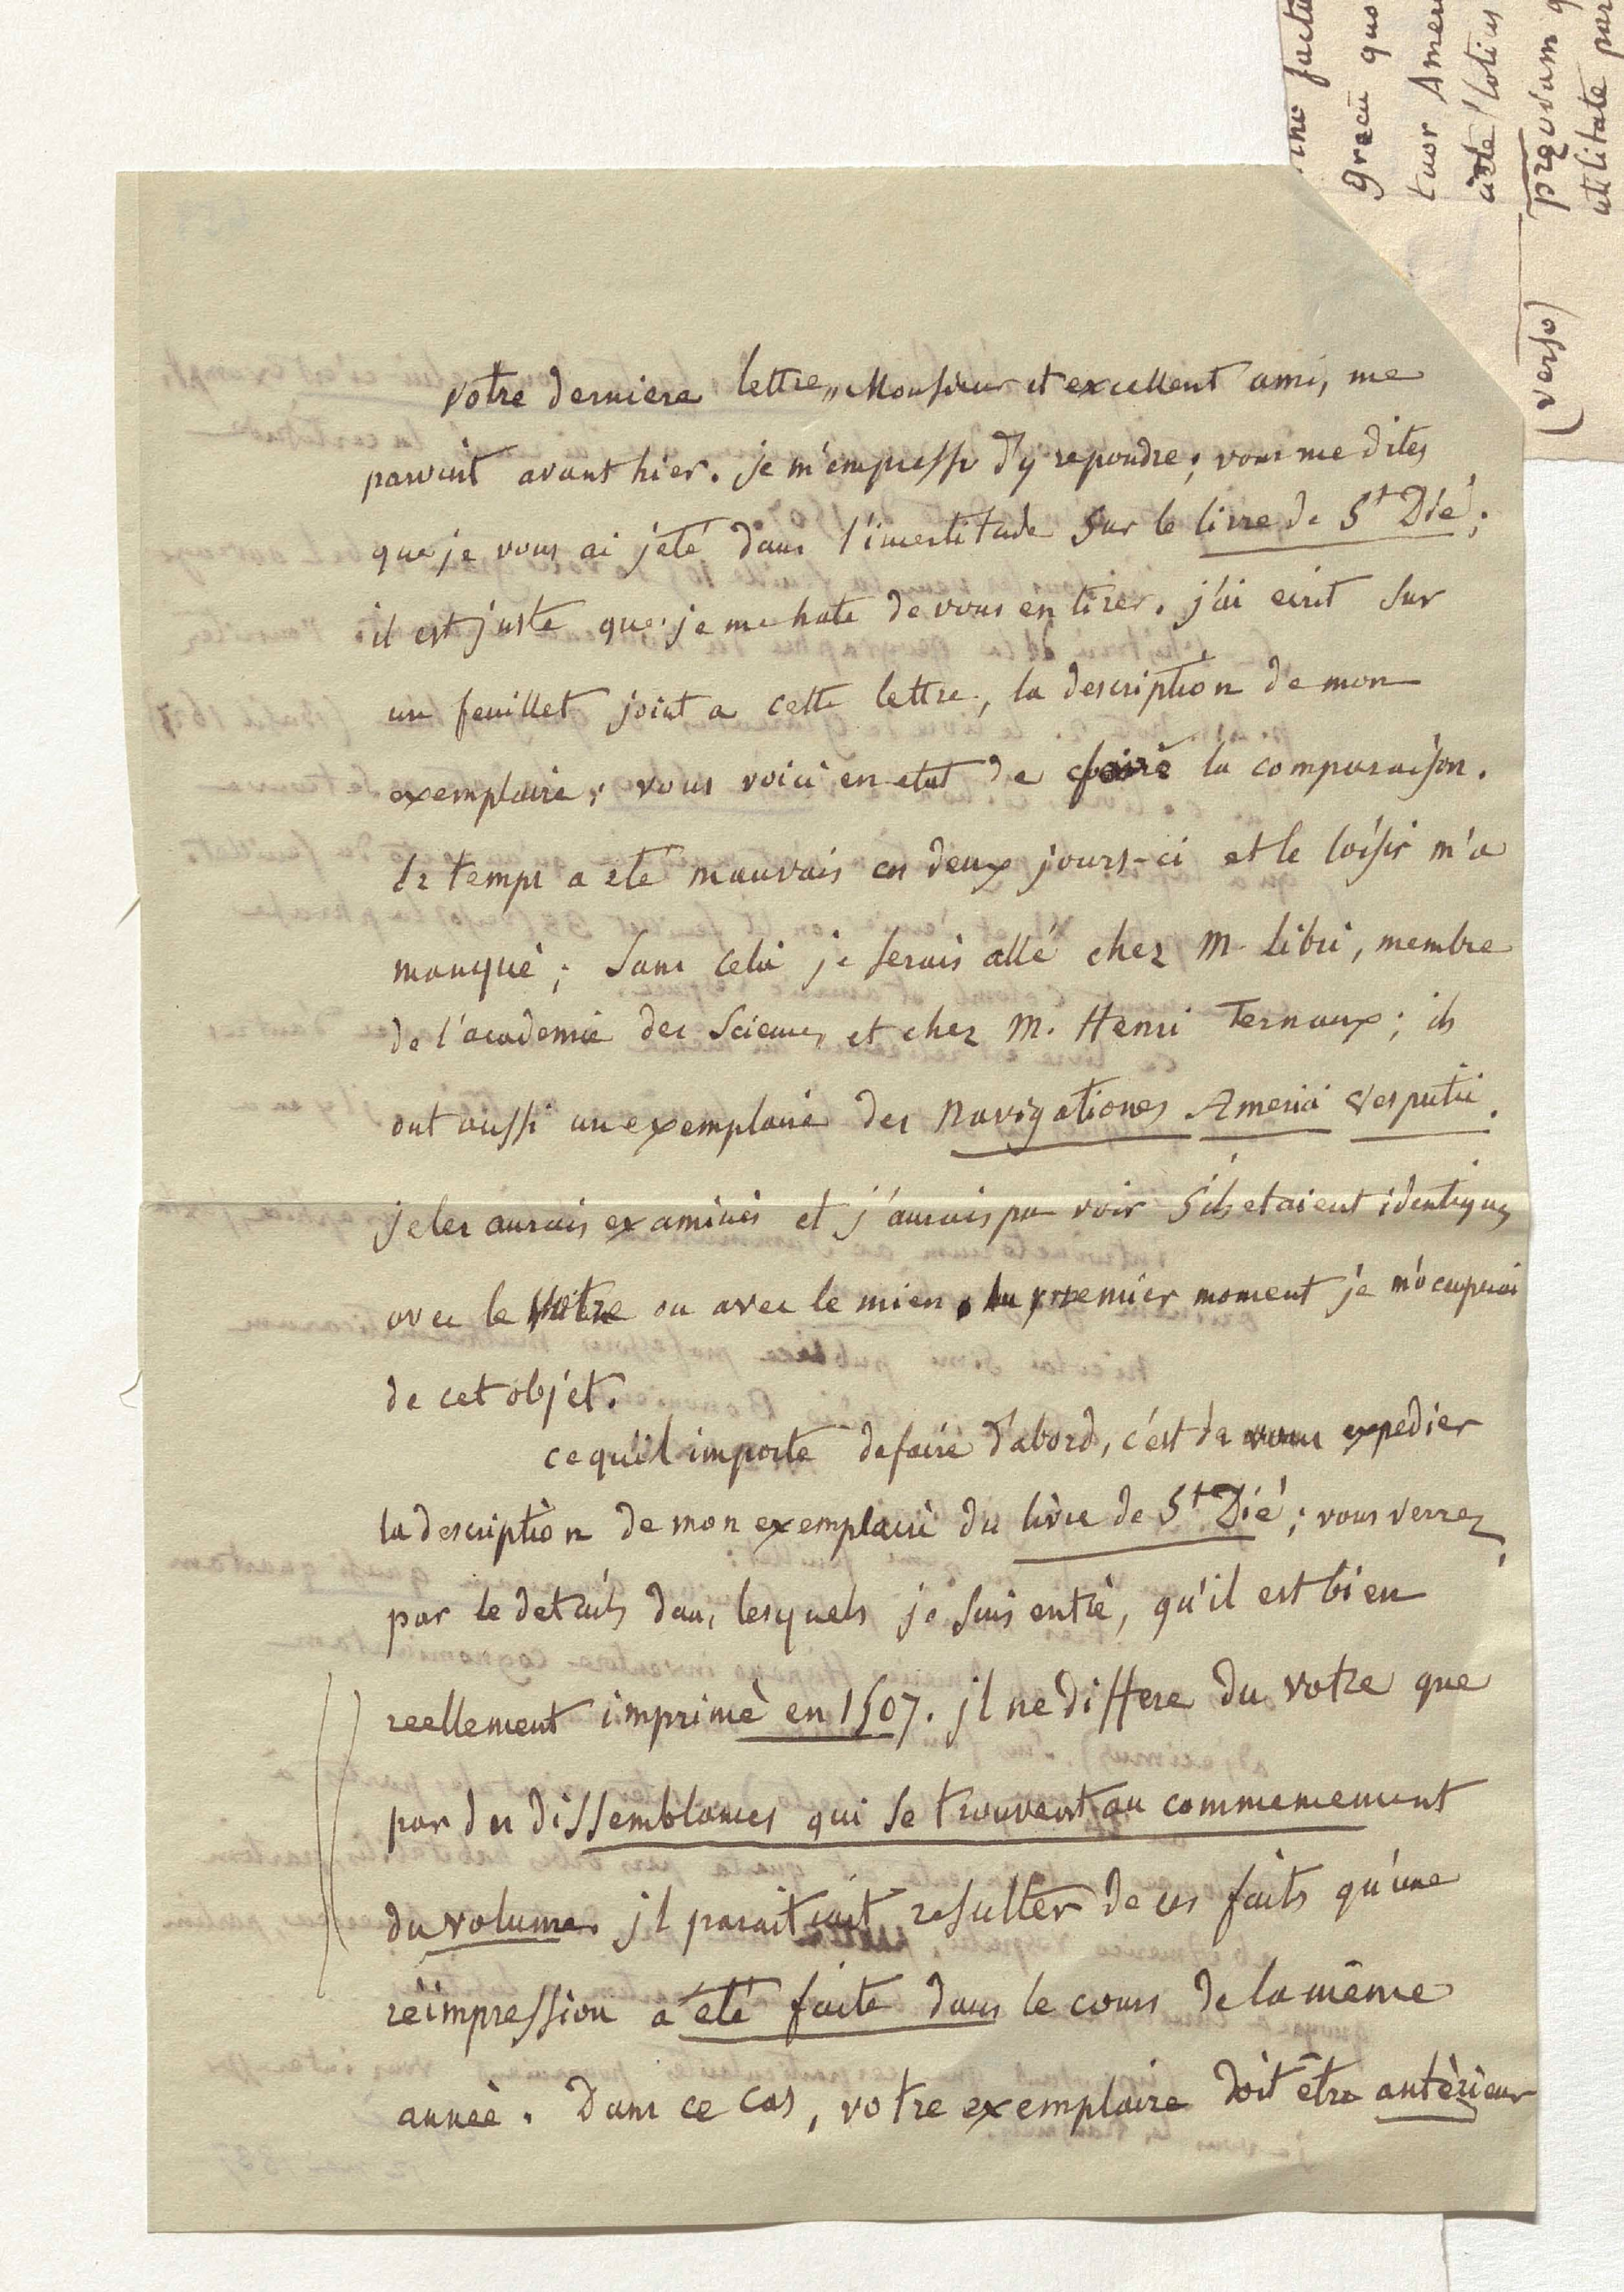 votre derniere lettre, Monsieur et excellent ami, me
parvint avant hier. je m'empresse d'y repondre; vous me dites
que je vous ai jété dans l'incertitude sur le livre de St Dié;
il est juste que je me hate de vous en tirer. j'ai ecrit sur
un feuillet joint a cette lettre, la description de mon
exemplaire; vous voici en etat de faire la comparaison.
le temps a été mauvais ces deux jours-ci et le loisir m'a
manqué; sans cela je serais allé chez M. Libri, membre
de l'academie des Sciences et chez M. Henri Ternaux; ils
ont aussi un exemplaire des Navigationes Americi Vesputii.
je les aurais examinés et j'aurais pu voir s'ils etaient identiques
avec le votre ou avec le mien. au premier moment je m'ocuperai
de cet objet.
ce qu'il importe de faire d'abord, c'est de vous expedier
la description de mon exemplaire du livre de St Dié; vous verrez,
par le details dans lesquels je suis entré, qu'il est bien
reellement imprimé en 1507. il ne differe du votre que
par des dissemblances qui se trouvent au commencement
du volume. il paraitrait resulter de ces faits qu'une
réimpression a été faite dans le cours de la même
année. Dans ce cas, votre exemplaire doit être antérieur
facta
græcu quo
tuor Amer
(verso)
utilitate par